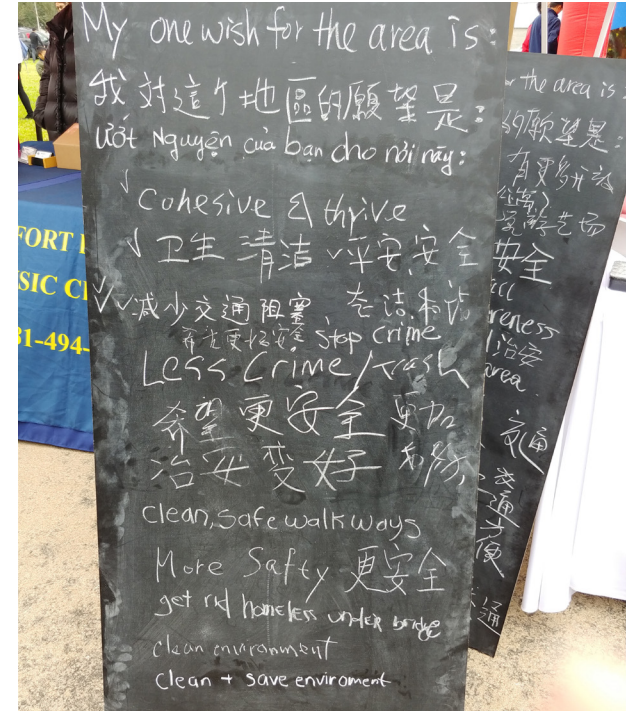 My one wish for the area is:
我对這个地區的願望是:
ước Nguyện của bạn cho nơi này:
√ Cohesive & thrive
√ 卫生 清洁 √平安,安全
√√减少交通阻塞
希望更加安全 stop crime
Less Crime/trash
希望更安全 更加
治安变好
clean, safe walkways
More Safty 更安全
get rid homeless under bridge
clean environment
clean + save enviroment
the area is:
的願望是:
有更多
安全
reness
治安
area.
交通
交
通
方
便
通
FORT
SIC
31-494-